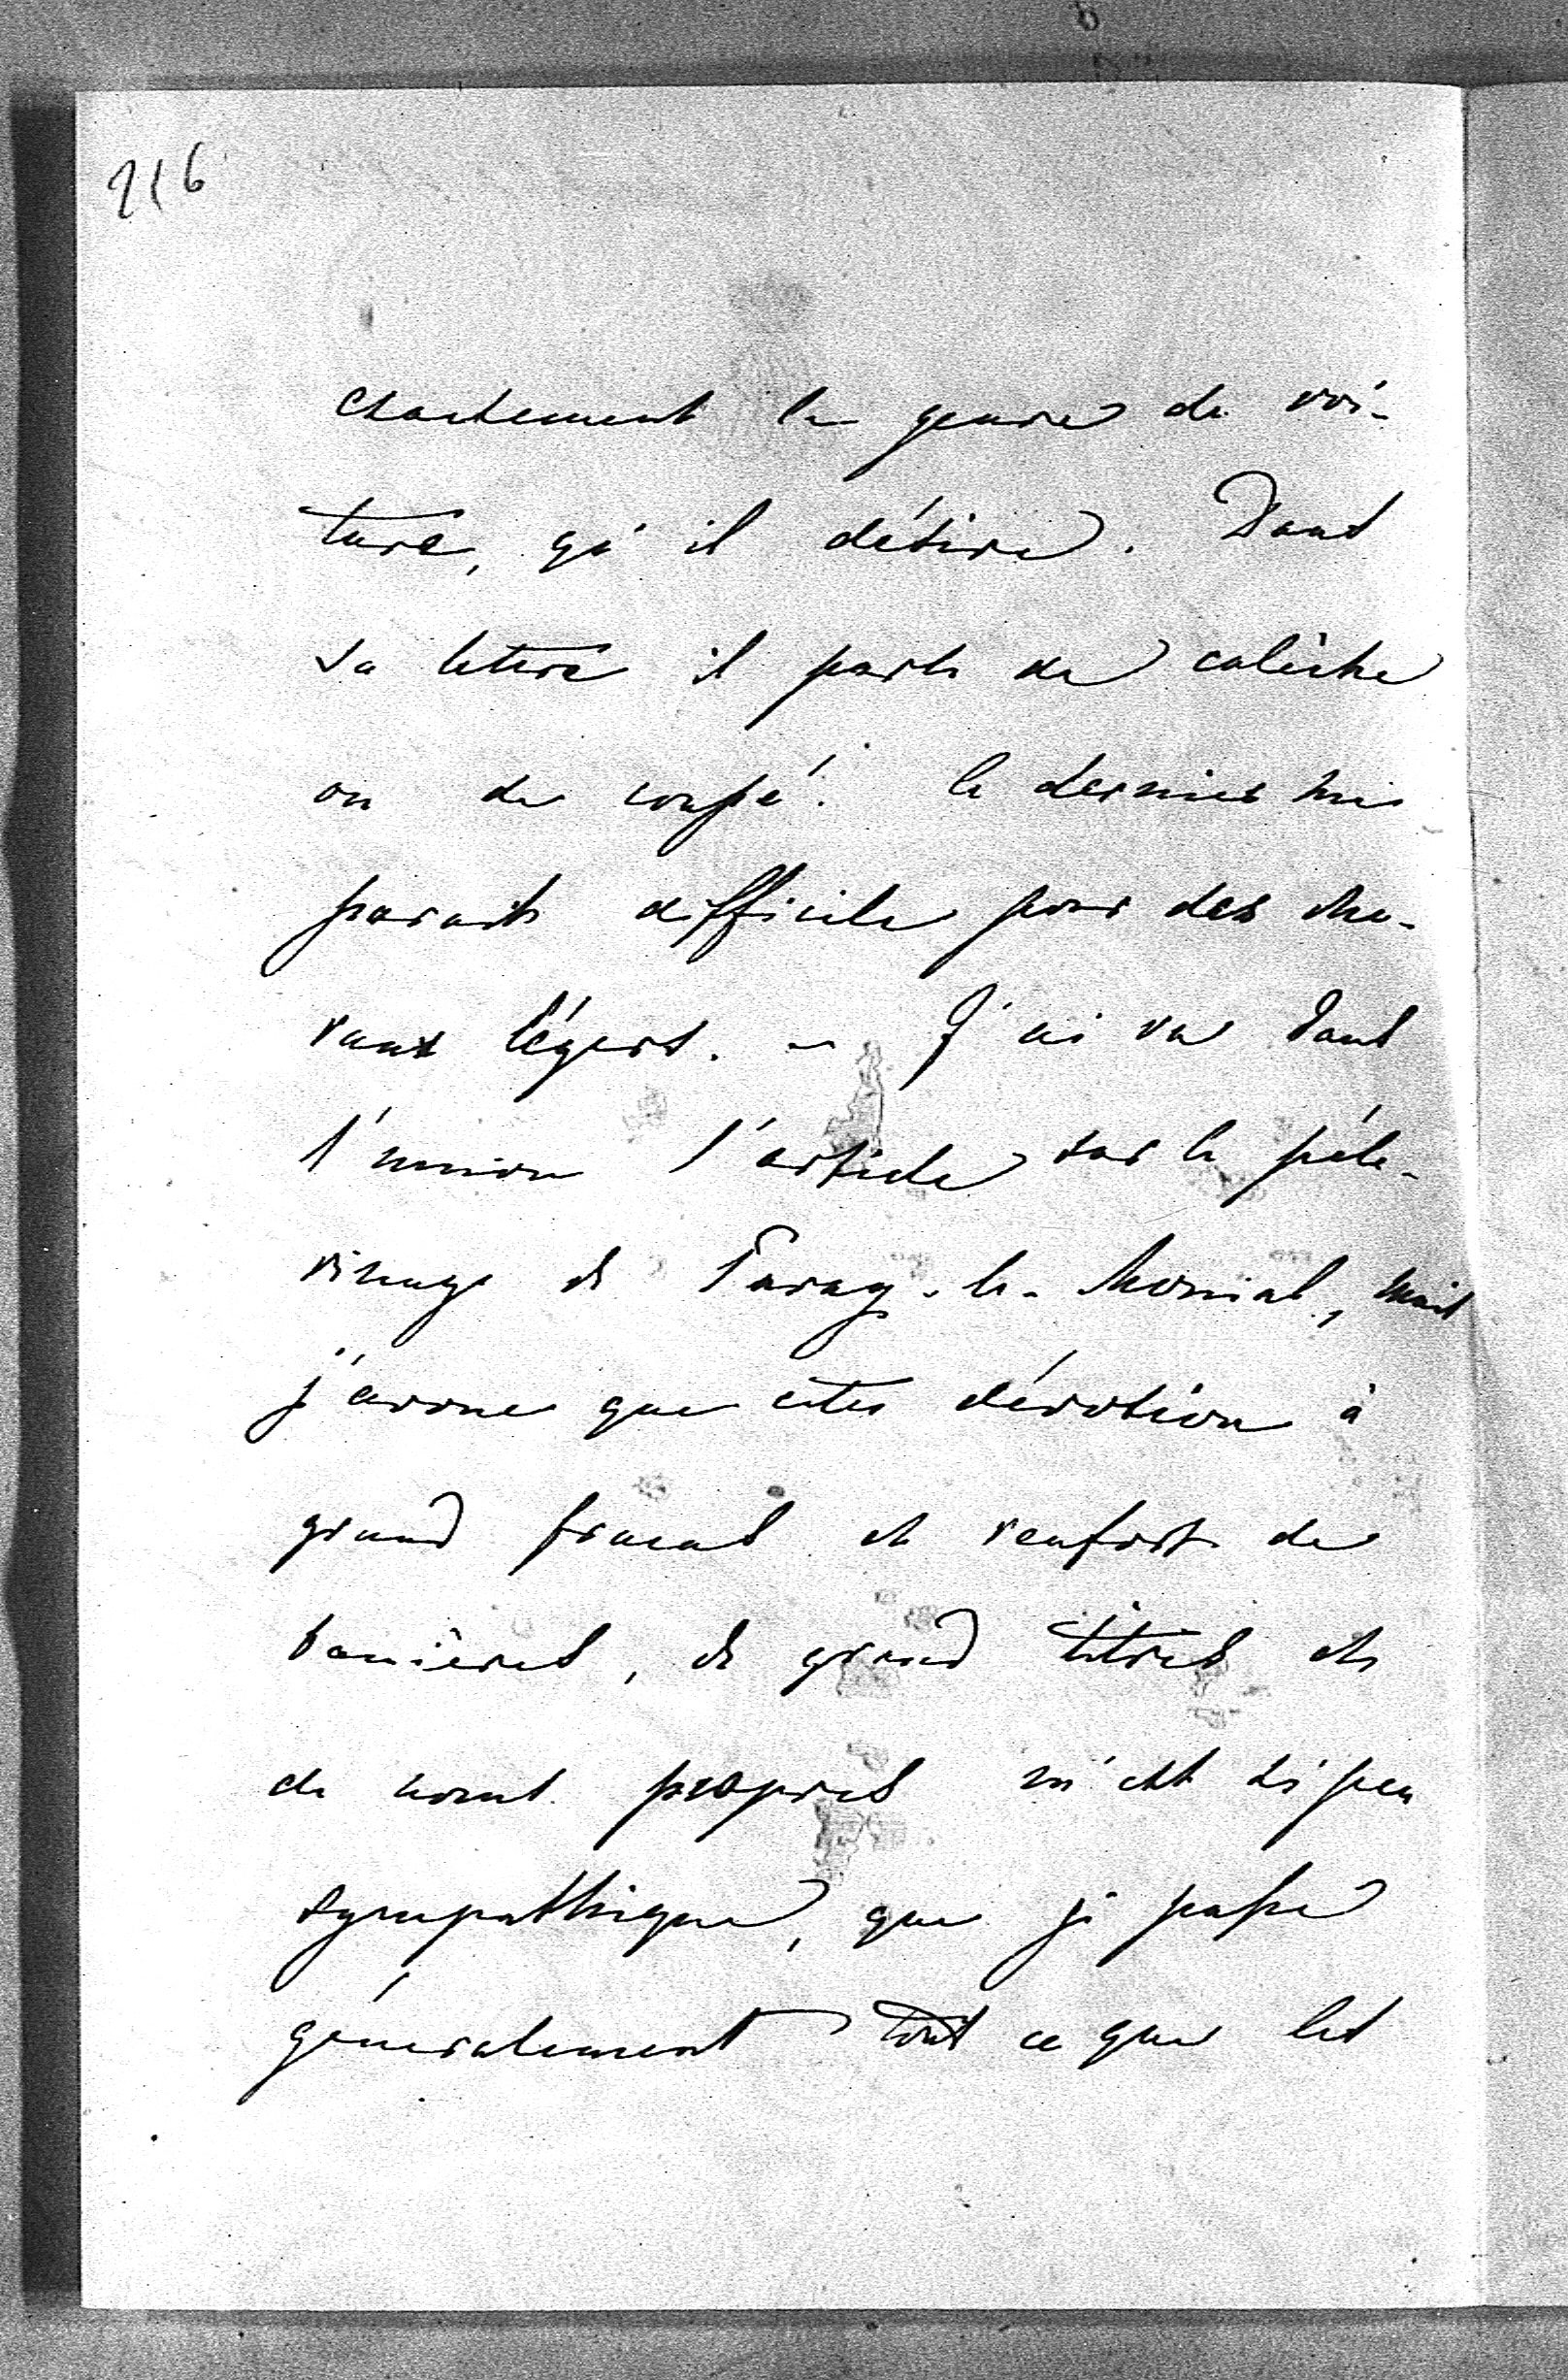 216
exactement le genre de voi-
ture, qu'il désire. Dans
sa lettre il parle de calèche
ou de coupé. le dernier me
parait difficile pour des che-
vaux légers. – J'ai vu dans
l'union l'article sur le péle-
rinage de Paray-le-Monial, mais
j'avoue que cette dévotion à
grand fracas et renfort de
banières, de grand titres et
de noms propres m'est si peu
sympathique, que je passe
généralement tout ce que les